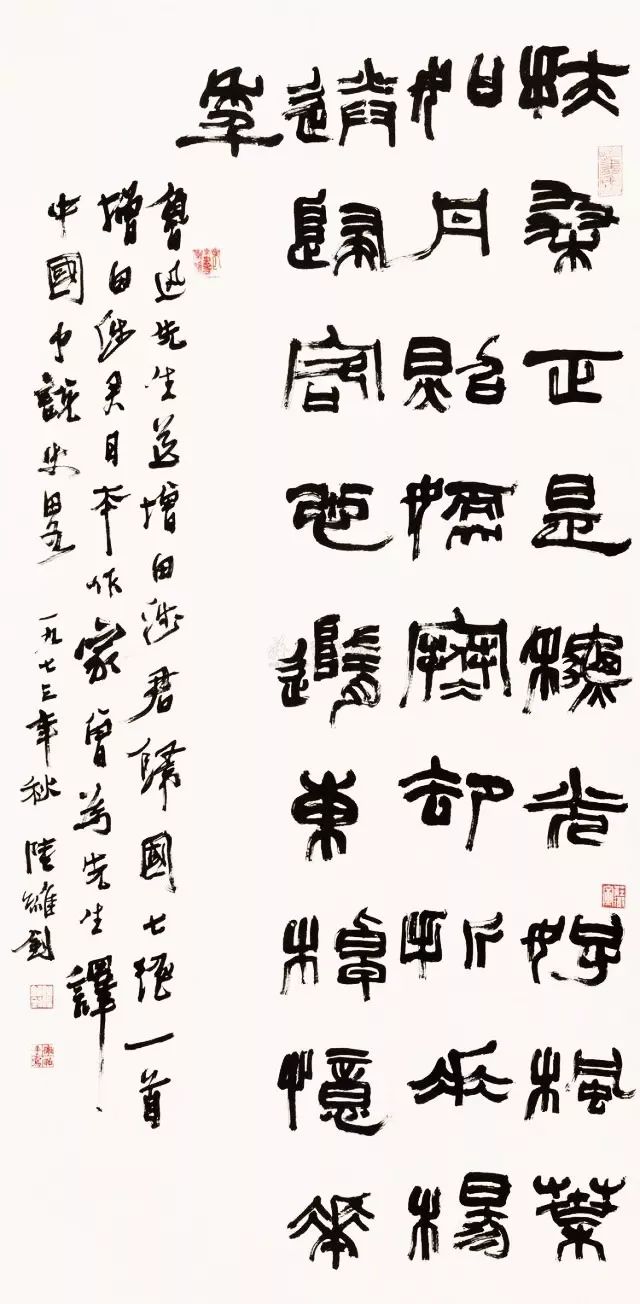 扶桑正是秋光好楓葉
如丹照嫩寒却折垂楊
送歸客心隨東棹憶華
年
魯迅先生送增田涉君歸國七絕一首
增田涉君日本作家曾為先生譯
中國小說史略 一九七三年秋 陸維釗